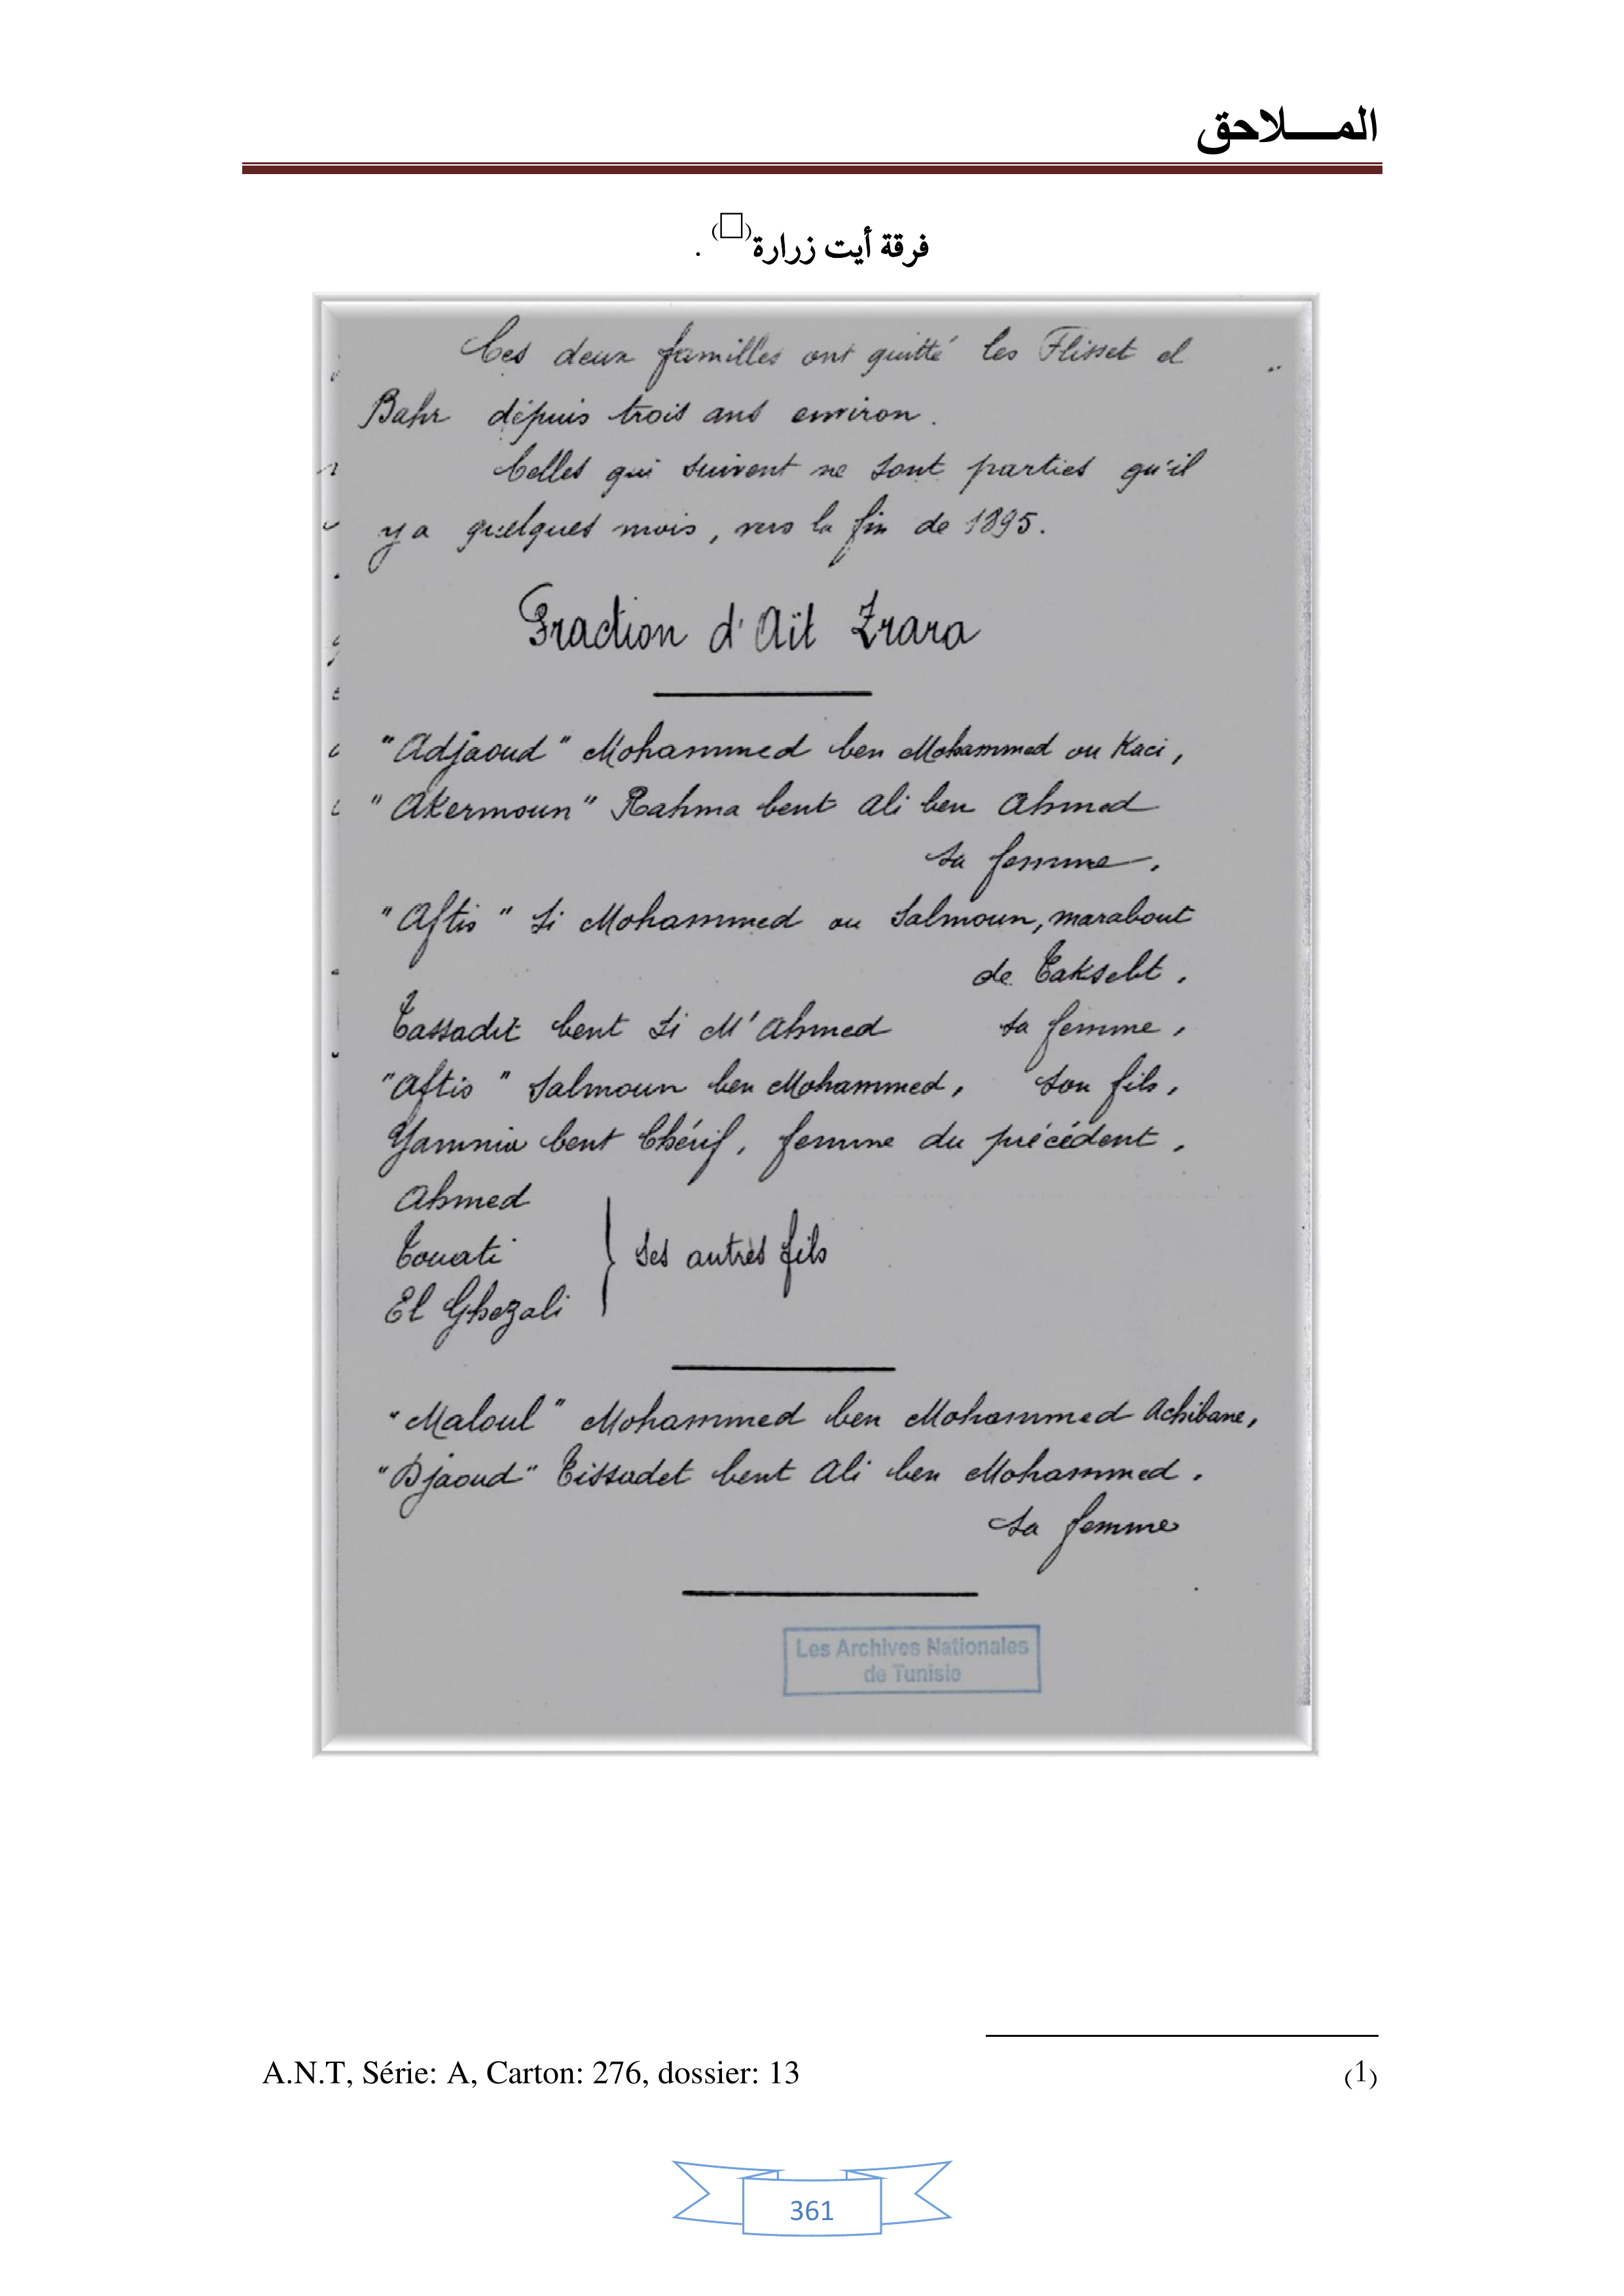 المـــــلاحق
فرقة أيت زرارة(□) .
Ces deux familles ont quitté les Flisset el
Bahr dépuis trois ans environ.
Celles qui suivent ne sont parties qu'il
y a quelques mois, vers la fin de 1895.
Fraction d'Aït Zrara
"Adjaoud" Mohammed ben Mohammed ou Kaci,
"Akermoun" Rahma bent Ali ben Ahmed
sa femme.
"Aftis" Si Mohammed ou Salmoun, marabout
de Taksebt.
Tassadit bent Si M'Ahmed sa femme,
"Aftis" Salmoun ben Mohammed, son fils,
Yamnia bent Chérif, femme du précédent.
Ahmed
Touati
El Ghezali
} ses autres fils
"Maloul" Mohammed ben Mohammed Achibane,
"Djaoud" Tissadet bent Ali ben Mohammed.
sa femme
Les Archives Nationales
de Tunisie
A.N.T, Série: A, Carton: 276, dossier: 13 (1)
361